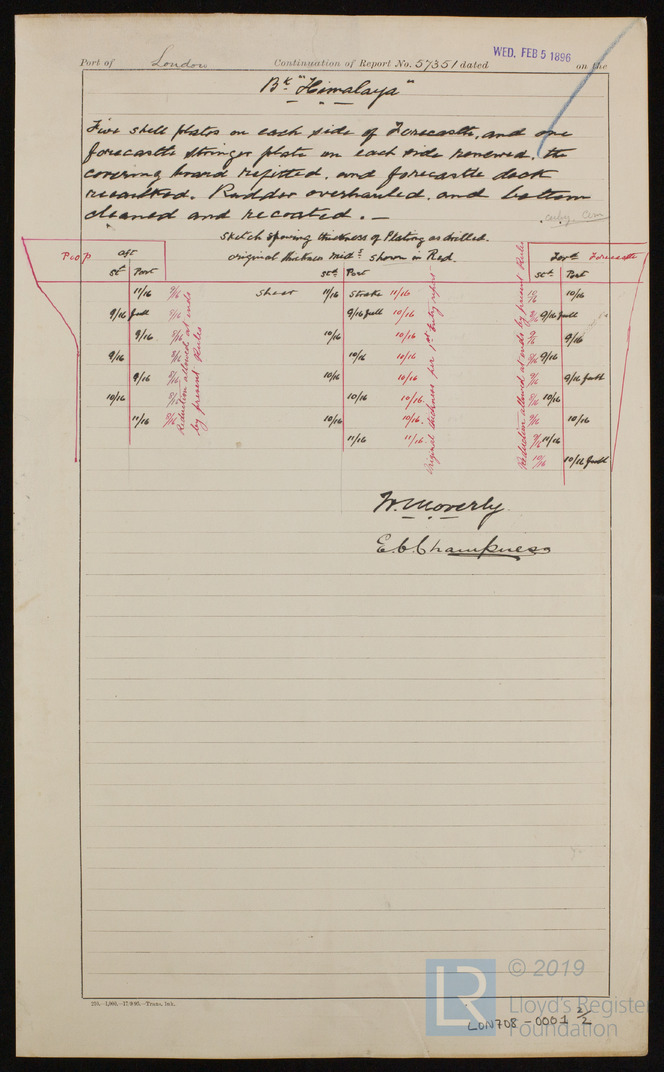 WED. FEB 5 1896
Port of London Continuation of Report No. 57351 dated on the
Bk "Himalaya"
Five shell plates on each side of Forecastle, and one
forecastle stringer plate on each side renewed, the
covering board refitted, and forecastle deck
recaulked. Rudder overhauled, and bottom
cleaned and recoated. —
Sketch showing thickness of Plating as drilled.
Poop aft original thickness mids shown in Red. Ford Forecastle
St Port Std Port Std Port
11/16 9/16 Shear 11/16 Strake 11/16 10/16
9/16 full 9/16 9/16 full 10/16 9/16 full
9/16 9/16 10/16 10/16 9/16
9/16 9/16 10/16 10/16 9/16
9/16 9/16 10/16 10/16 9/16 full
10/16 9/16 10/16 10/16 10/16
11/16 9/16 10/16 10/16 10/16
11/16 11/16 11/16
10/16 10/16 full
Reduction allowed at ends
by present Rules
Original thickness per 1st Entry report
Reduction allowed at ends by present Rules
W. Moverly
E. C. Champness
© 2019
LR
Lloyd's Register
Foundation
LON708-0001 2/2